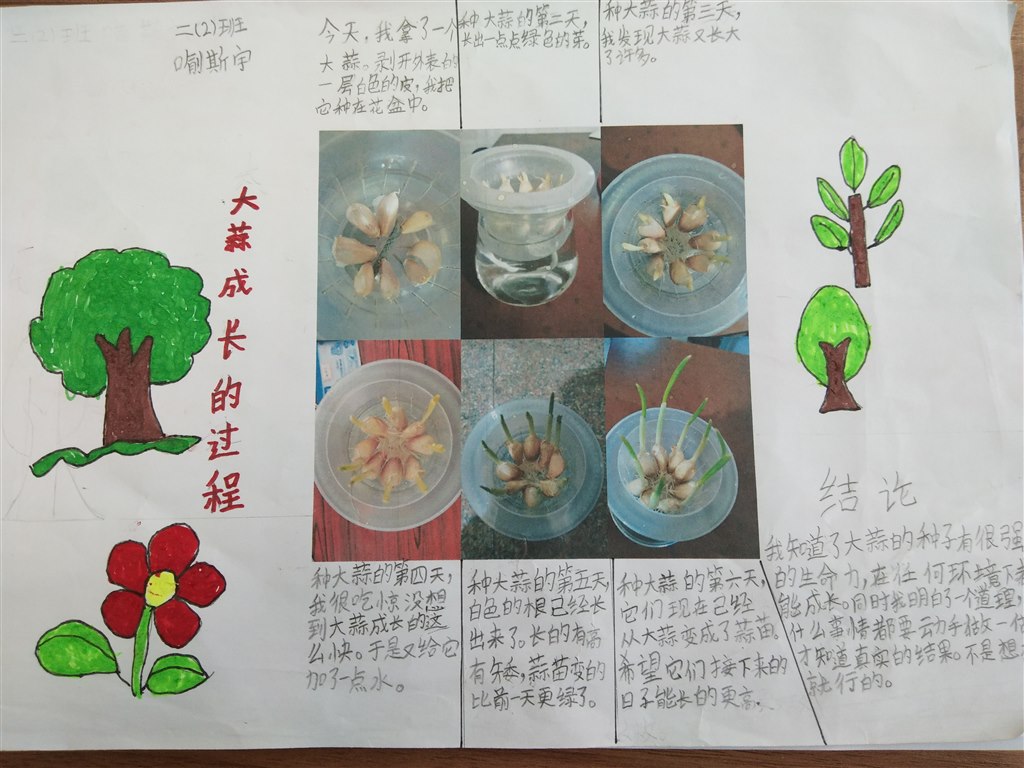 二(2)班
喻斯宇
大蒜成长的过程
今天，我拿了一个
大蒜。剥开外表的
一层白色的皮，我把
它种在花盆中。
种大蒜的第二天，
长出一点点绿色的芽。
种大蒜的第三天，
我发现大蒜又长大
了许多。
种大蒜的第四天，
我很吃惊没想
到大蒜成长的这
么快。于是又给它
加了一点水。
种大蒜的第五天，
白色的根已经长
出来了。长的有高
有矮，蒜苗变的
比前一天更绿了。
种大蒜的第六天，
它们现在已经
从大蒜变成了蒜苗。
希望它们接下来的
日子能长的更高。
结论
我知道了大蒜的种子有很强
的生命力，在任何环境下
能成长。同时我明白了一个道理，
什么事情都要动手做一
才知道真实的结果。不是想
就行的。